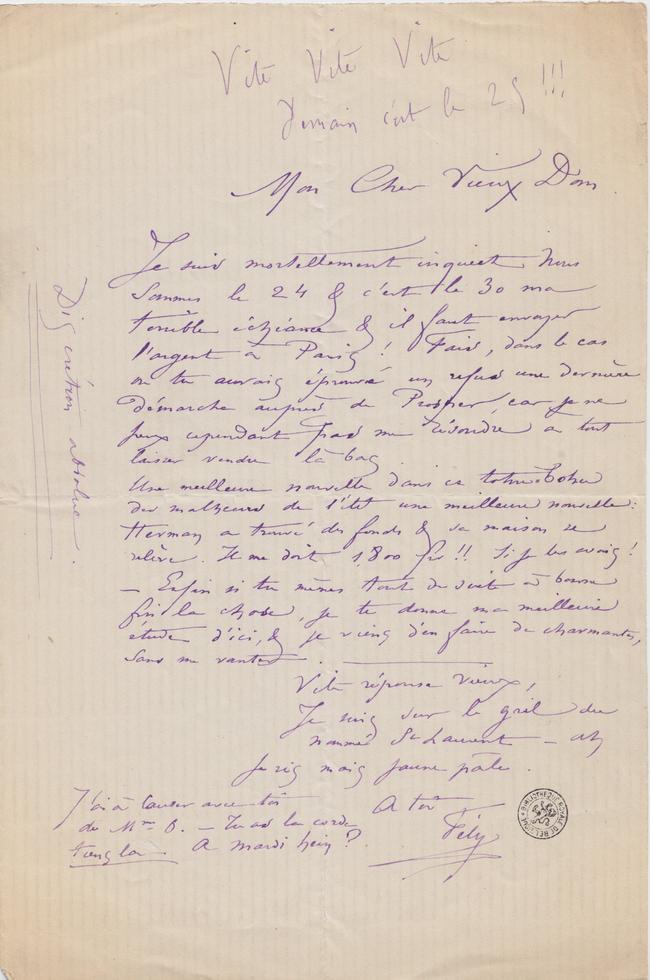 Vite Vite Vite
Demain c'est le 25 !!!
Mon Cher Vieux Dom
Je suis mortellement inquiet. Nous
sommes le 24 & c'est le 30 ma
terrible échéance & il faut envoyer
l'argent à Paris ! Fais, dans le cas
où tu aurais éprouvé un refus une dernière
démarche auprès de Prosper, car je ne
peux cependant pas me résoudre à tout
laisser vendre là bas
Une meilleure nouvelle dans ce tohu-bohu
des malheurs de l'été une meilleure nouvelle :
Herman a trouvé des fonds & sa maison se
relève. Il me doit 1,800 frs !! Si je les avais !
— Enfin si tu mènes tout de suite à bonne
fin la chose, je te donne ma meilleure
étude d'ici, & je viens d'en faire de charmantes,
sans me vanter.
Vite réponse vieux,
Je suis sur le gril du
nommé St Laurent — et
je ris mais jaune pâle.
A toi
Fély
J'ai à causer avec toi
de Mme O. — Tu as la corde
A mardi hein ?
Discrétion absolue.
BIBLIOTHÈQUE ROYALE DE BELGIQUE